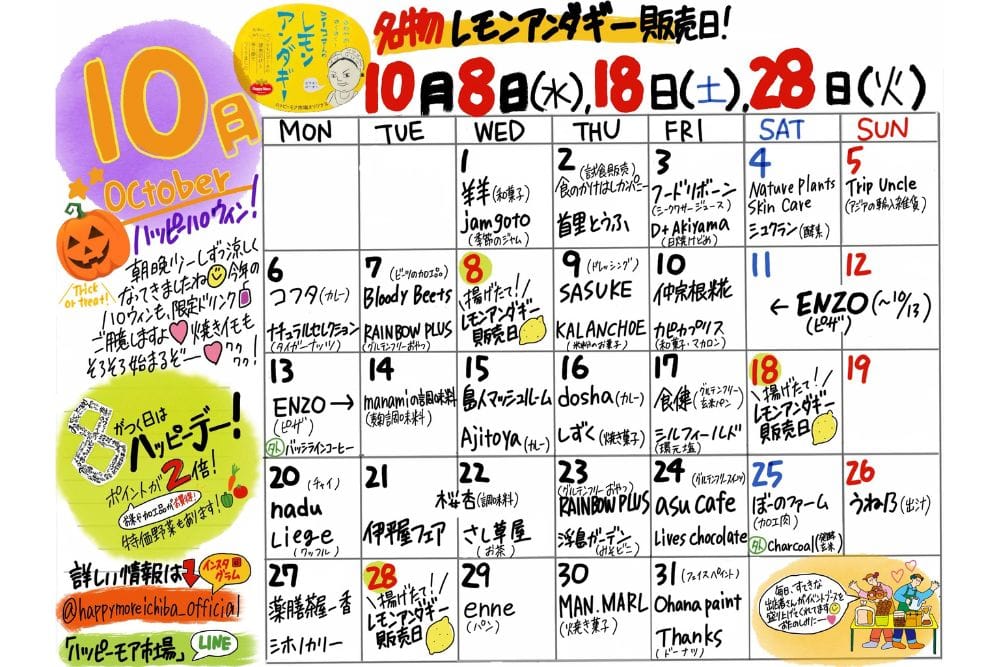 10月
October
ハッピーハロウィン!
Trick
or treat!
朝晩少ーしずつ涼しく
なってきましたね 今年の
ハロウィンも、限定ドリンク
ご用意しますよ 焼きイモも
そろそろ始まるぞー ワクワク!
8がつく日は
ハッピーデー!
ポイントが2倍!
お味や加工品がお買得!
特価野菜もあります!
詳しい情報は インスタグラム
@happymoreichiba_official
「ハッピーモア市場」 LINE
レモン
アンダギー
Happy More
ハッピーモア市場オリジナル
名物 レモンアンダギー販売日!
10月8日(水),18日(土),28日(火)
MON TUE WED THU FRI SAT SUN
1
羊羊(和菓子)
jamgoto
(季節のジャム)
2 (試食販売)
食のかけはしカンパニー
首里とうふ
3
フードリボーン
(シークワサージュース)
D+Akiyama
(日焼けどめ)
4
Nature Plants
Skin Care
ミュクラン(酵素)
5
Trip Uncle
(アジアの輸入雑貨)
6
コフタ(カレー)
ナチュラルセレクション
(タイガーナッツ)
7 (ビーツの加工品)
Bloody Beets
RAINBOW PLUS
(グルテンフリーおやつ)
8
揚げたて!
レモンアンダギー
販売日
9 (ドレッシング)
SASUKE
KALANCHOE
(米粉のお菓子)
10
仲宗根糀
カピカプリス
(和菓子・マカロン)
11
12
← ENZO (~10/13)
(ピザ)
13
ENZO →
(ピザ)
外 バッシラインコーヒー
14
manamiの調味料
(麹調味料)
15
島人マッシュルーム
Ajitoya(カレー)
16
dosha(カレー)
しずく(焼き菓子)
17
食健(グルテンフリー玄米パン)
シルフィールド
(還元塩)
18
揚げたて!
レモンアンダギー
販売日
19
20 (チャイ)
nadu
Liege
(ワッフル)
21
伊平屋フェア
22
桜杏(調味料)
さし草屋
(お茶)
23
(グルテンフリーおやつ)
RAINBOW PLUS
浮島ガーデン
(みそドニ)
24 (グルテンフリースイーツ)
asu cafe
Lives chocolate
25
ぼーのファーム
(加工肉)
外 Charcoal(発酵玄米)
26
うね乃(出汁)
27
薬膳茶屋一香
ミホノカリー
28
揚げたて!
レモンアンダギー
販売日
29
enne
(パン)
30
MAN.MARL
(焼き菓子)
31 (フェイスペイント)
Ohana paint
Thanks
(ドーナツ)
毎日、すてきな
出店者さんがイベントブースを
盛り上げてくれてます